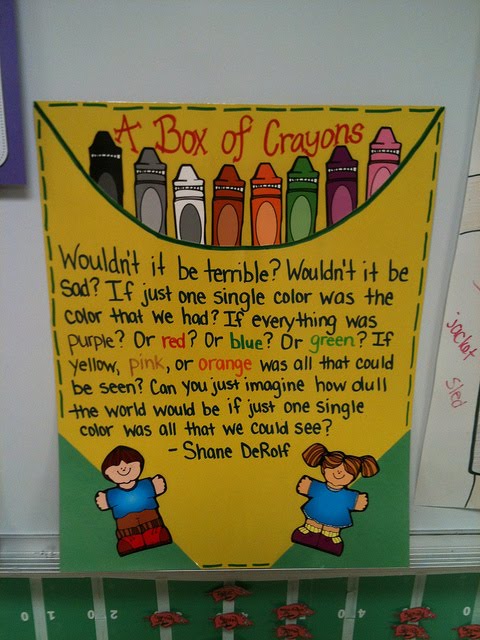 A Box of Crayons
Wouldn't it be terrible? Wouldn't it be
sad? If just one single color was the
color that we had? If everything was
purple? Or red? Or blue? Or green? If
yellow, pink, or orange was all that could
be seen? Can you just imagine how dull
the world would be if just one single
color was all that we could see?
- Shane DeRolf
jacket
sled
0
1
2
4
0